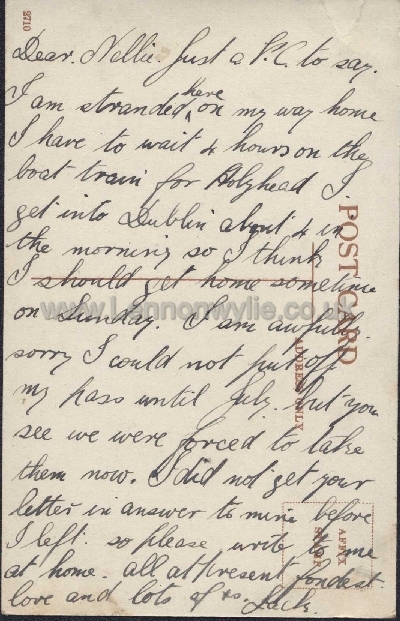 2710
Dear. Nellie. Just a P.C. to say.
I am stranded here on my way home
I have to wait 4 hours on the
boat train for Holyhead I
get into Dublin about 4 in
the morning so I think
I should get home sometime
on Sunday. I am awfully
sorry I could not put off
my pass until July. but you
see we were forced to take
them now. I did not get your
letter in answer to mine before
I left. so please write to me
at home. all at present fondest
love and lots of xs. Jack.
POST CARD
ADDRESS ONLY
AFFIX
STAMP
www.Lennonwylie.co.uk